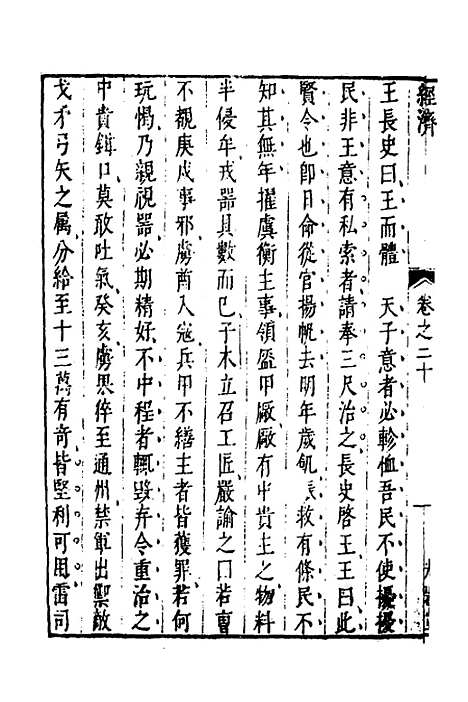 王長史曰王而體　天子意者必軫恤吾民不使擾擾
民非王意有私索者請奉三尺治之長史啓王王曰此
賢令也卽日命從官揚帆去明年歲飢賑救有條民不
知其無年擢虞衡主事領盔甲廠廠有中貴主之物料
半侵牟戎器具數而已子木立召工匠嚴諭之曰若曹
不覩庚戌事邪虜酋入寇兵甲不繕主者皆獲罪若何
玩愒乃親視器必期精好不中程者輒毀弃令重治之
中貴鉗口莫敢吐氣癸亥虜果倅至通州禁軍出禦敵
戈矛弓矢之屬分給至十三萬有奇皆堅利可用雷司
經濟
卷之三十